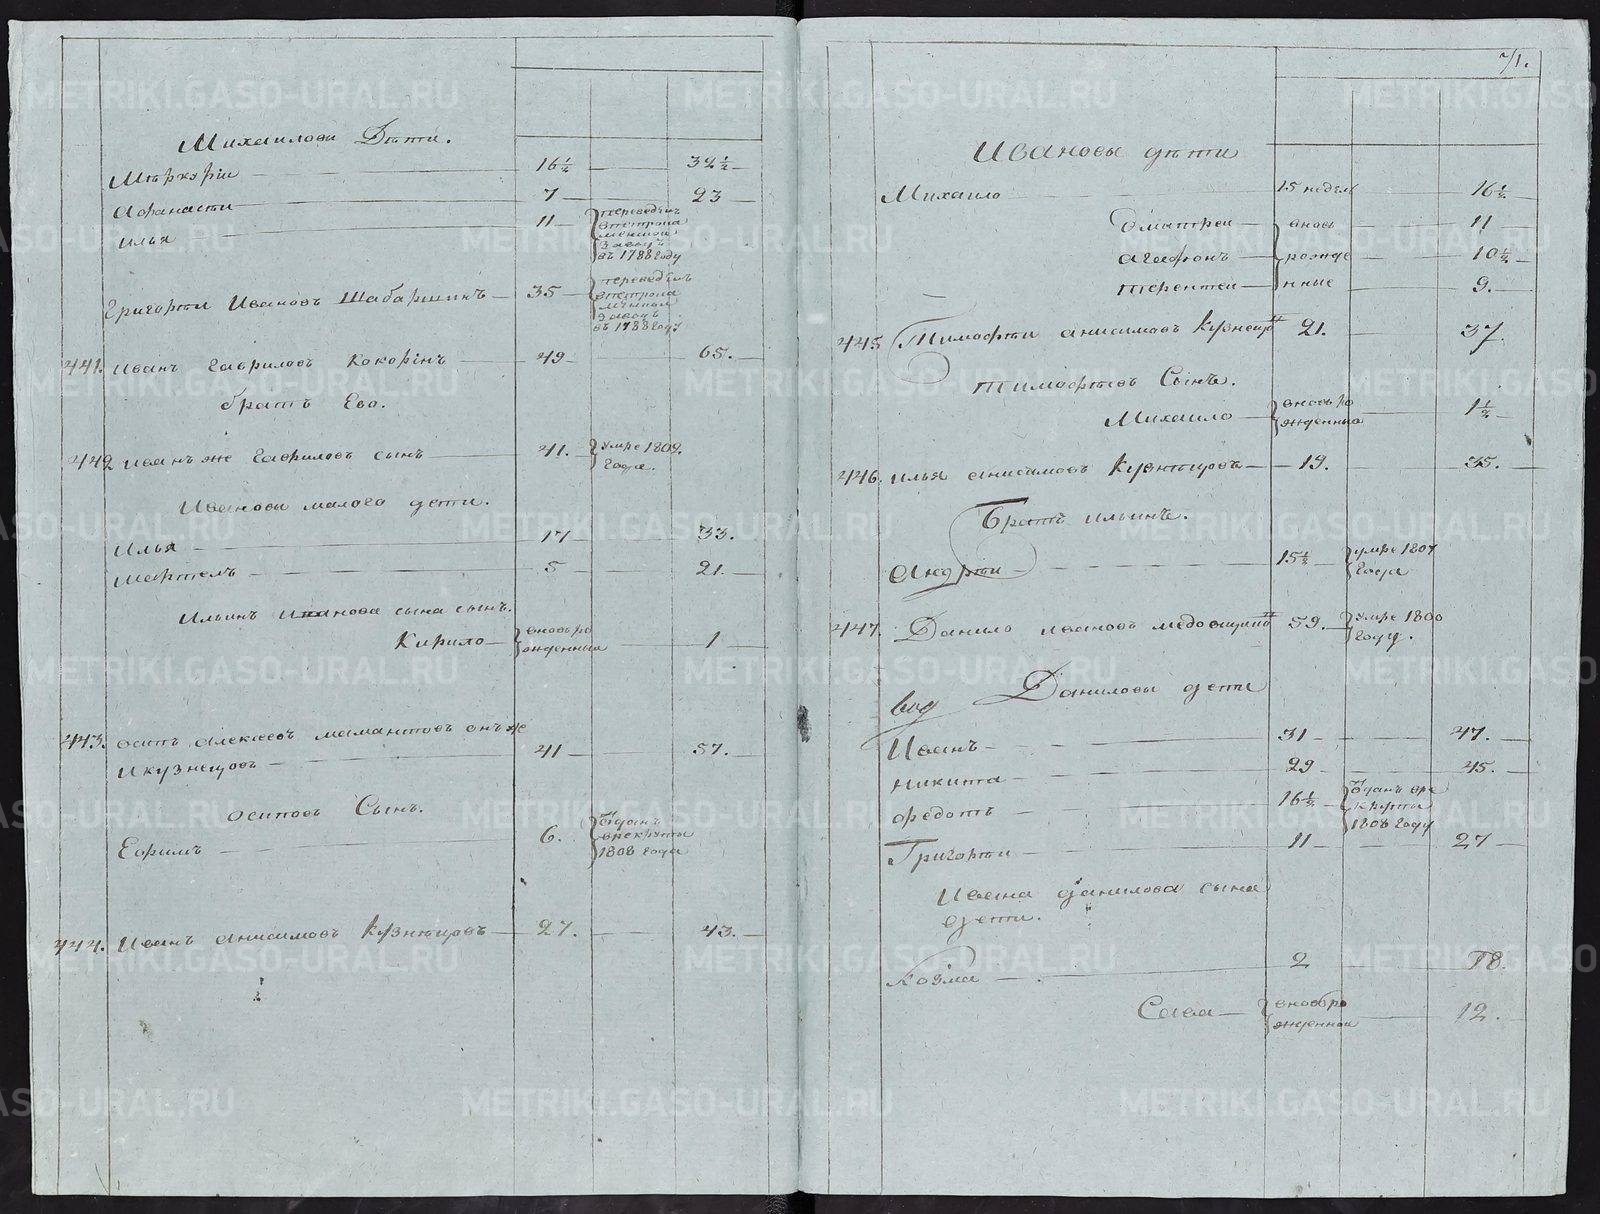 Михаиловы Дѣти.
Мѣркурiи 16½ 32½
Афанасѣи 7 23
Илья 11
въ 1788 году
Григорѣи Ивановъ Шабаршинъ 35
заводъ
въ 1788 году
441. Иванъ Гавриловъ Кокоринъ 49 65.
братъ Ево.
442 Иванъ же Гавриловъ сынъ 41. умре 1809.
года.
Ивановы малого дети.
Илья 17 33.
5 21.
Ильинъ Иванова сына сынъ.
Кирило вновь ро
жденныи 1
443. Осипъ Алексеевъ онъ же
и Кузнецовъ 41 57.
Осиповъ Сынъ.
Ефимъ 6. Зданъ
врекруты
1808 года
444. Иванъ Анисимовъ Кузнѣцовъ 27. 43.
71.
Ивановы дѣти
Михаило 15 недель 16½
Дмитреи вновь 11
Агафонъ рожде 10½
Терентеи нные 9.
445 Тимофѣи Анисимовъ Кузнецо 21. 37.
Тимофѣевъ Сынъ.
Михаило вновь ро
жденныи 1½
446. Илья Анисимовъ Кузнѣцовъ 19. 35.
Братъ Ильинъ.
Андрѣи 15½ умре 1807
года
447. Данило Ивановъ 59. умре 1800
году.
Даниловы дети
Иванъ 31 47.
Никита 29 45.
Федотъ 16½ Зданъ вре
круты
1808 году
Григорѣи 11 27
Ивана Данилова сына
дети.
Козма 2 18.
Сава вновьро
жденнои 12.
METRIKI.GASO-URAL.RU